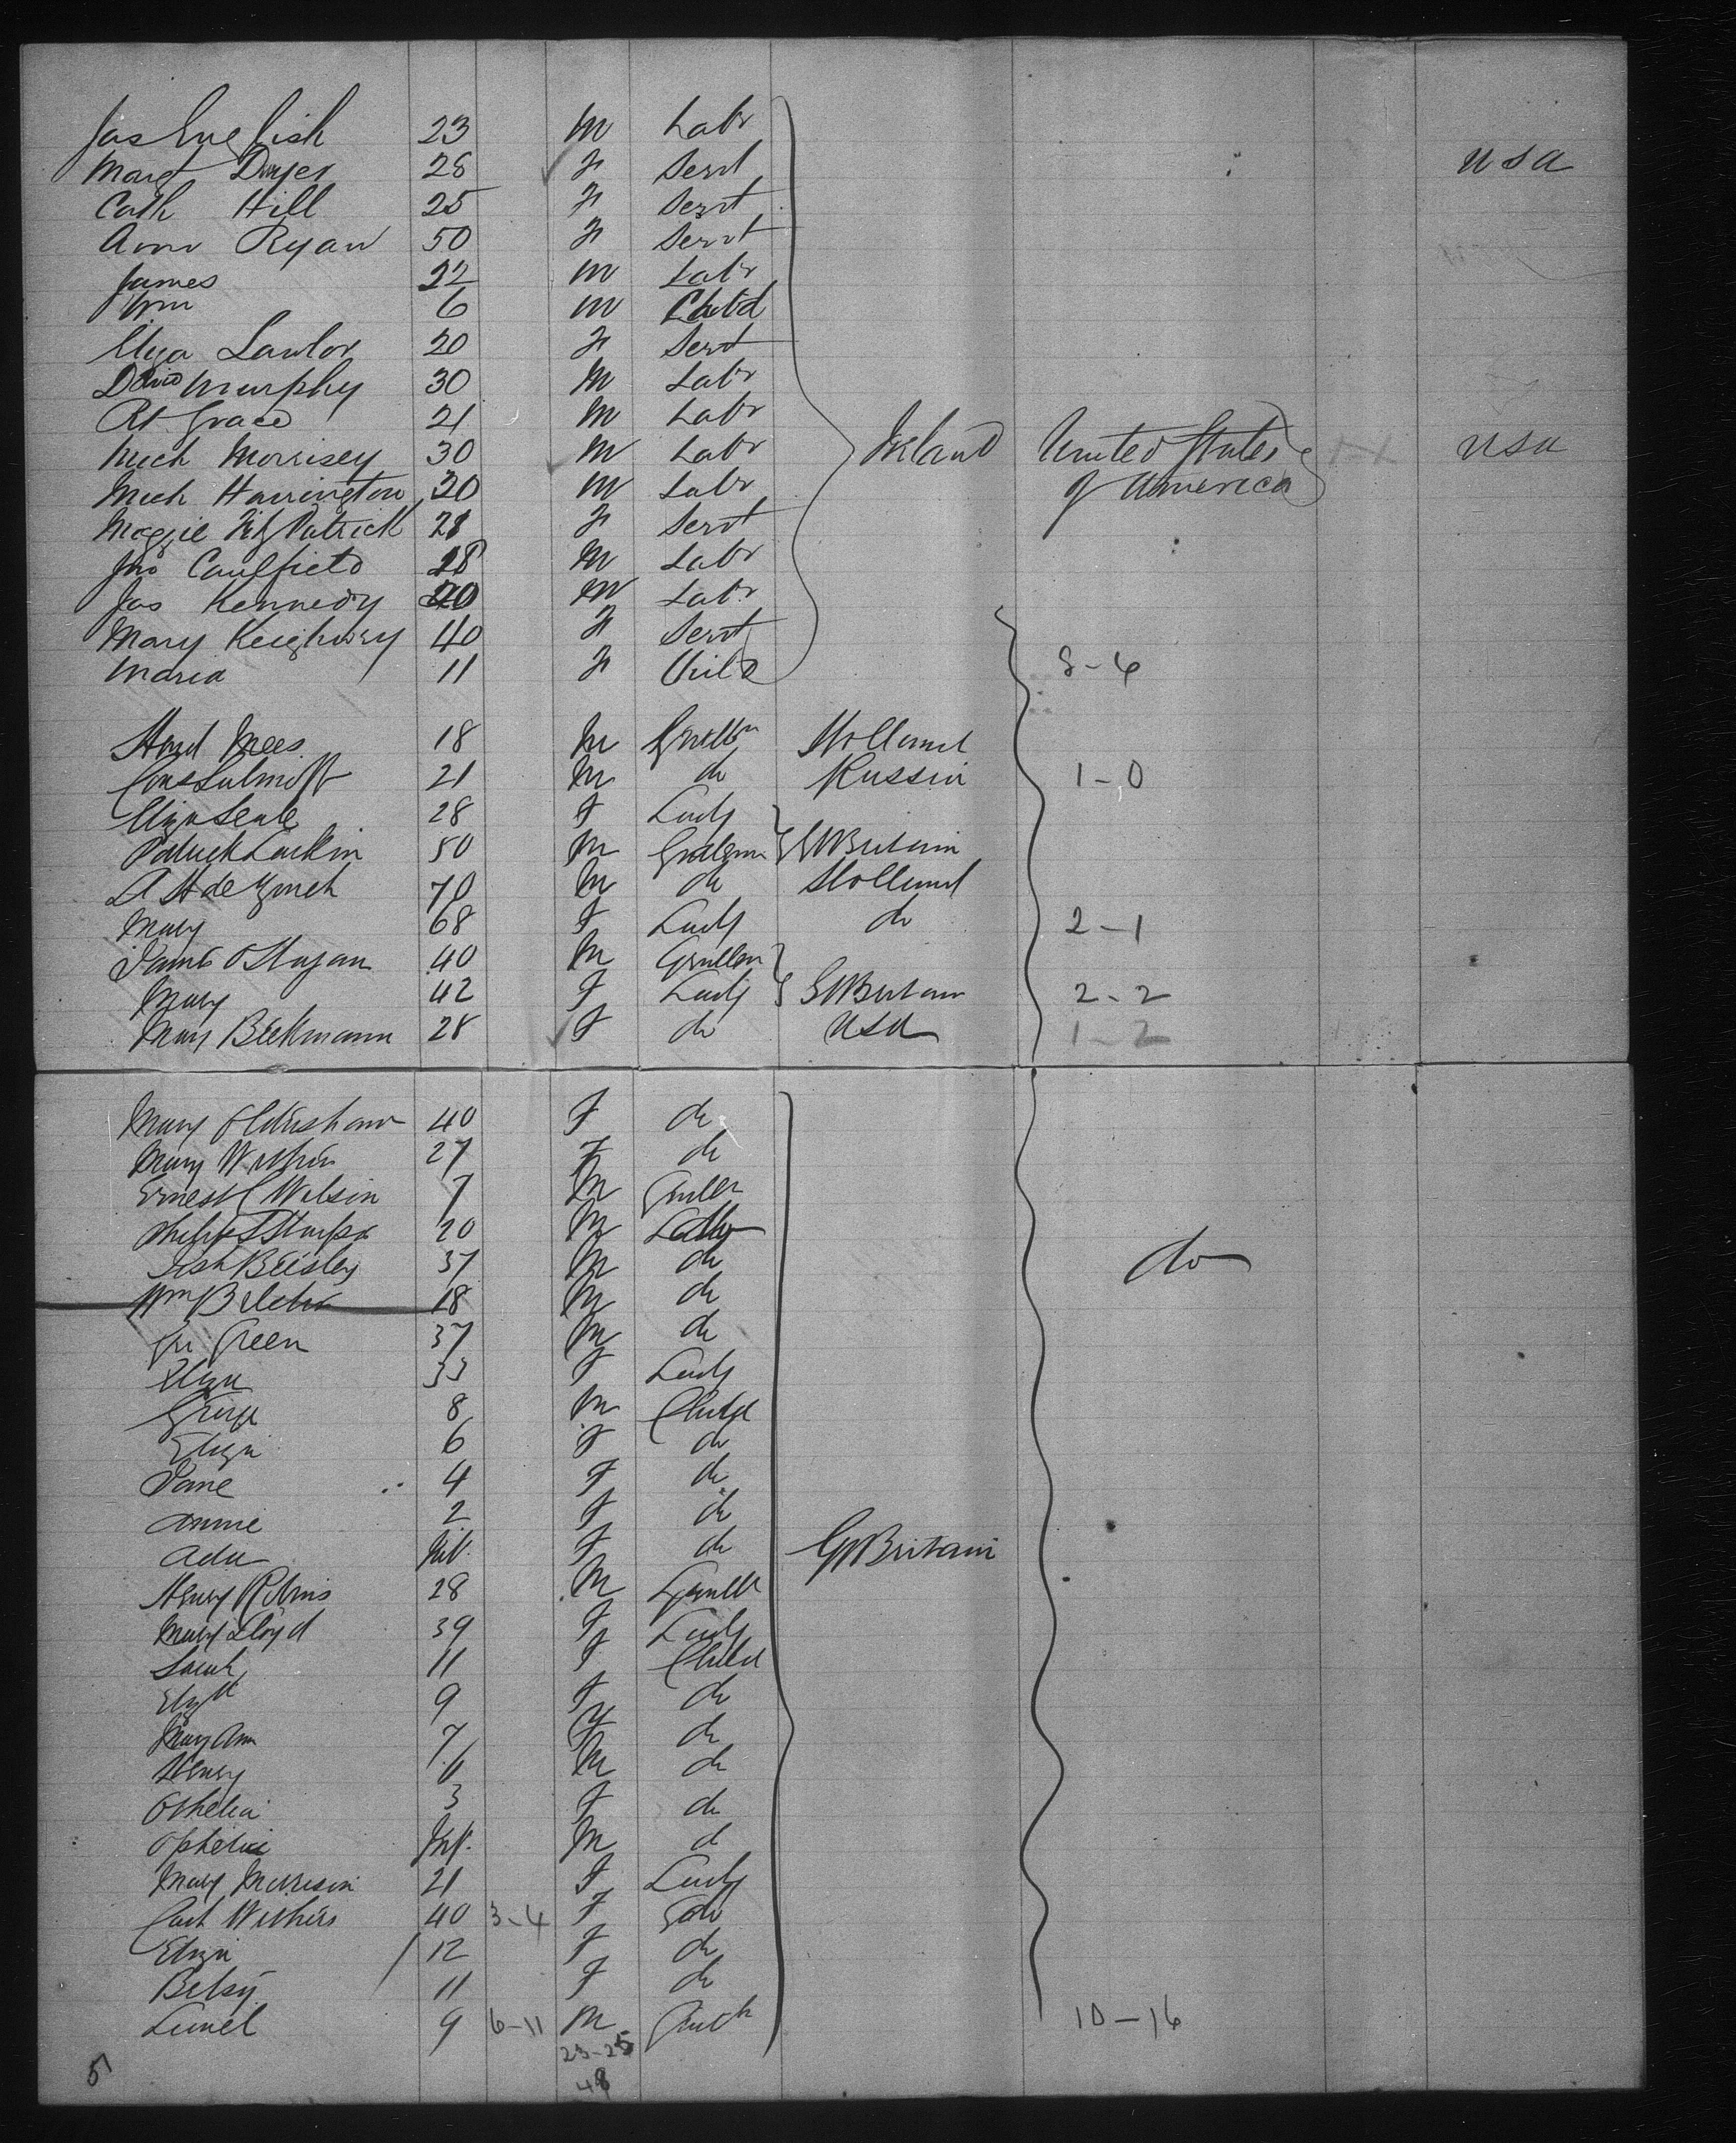 Jas English 23 M Labr
Margt Dwyer 28 F Servt USA
Cath Hill 25 F Servt
Ann Ryan 50 F Servt
James 22 M Labr
Wm 6 M Child
Eliza Lawlor 20 F Servt
David Murphy 30 M Labr
Rt Grace 21 M Labr
Mich Morrisey 30 M Labr Ireland United States USA
Mich Harrington 30 M Labr of America
Maggie FitzPatrick 28 F Servt
Jno Caulfield 28 M Labr
Jas Kennedy 20 M Labr
Mary 40 F Servt
Maria 11 F Child 8-6
Mees 18 M Holland
21 M do Russia 1-0
Eliza 28 F Lady
Patrick Larkin 50 M Gt Britain
A H de 70 M do Holland
Mary 68 F Lady do 2-1
James O Hagan 40 M
Mary 42 F Lady Gt Britain 2-2
Mary Beekmann 28 F do USA 1-2
Mary Oldershaw 40 F do
Mary 27 F do
Ernest Watson 7 M
20 M
Beesley 37 M do do
Wm 18 M do
Green 37 M do
Eliza 33 F Lady
George 8 M Child
Eliza 6 F do
Jane 4 F do
Annie 2 F do
Ada Inf. F do Gt Britain
Henry 28 M
Mary Lloyd 39 F Lady
Sarah 11 F Child
Elizth 9 F do
Mary Ann 7 F do
Henry 6 M do
3 F do
Ophelia Inf. M d
Mary Morrison 21 F Lady
Cath Withers 40 3-4 F do
Eliza 12 F do
Betsy 11 F do
9 6-11 M 10-16
23-25
48
5